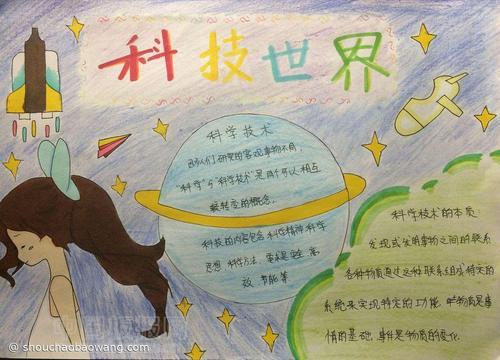 科技世界
科学技术
因人们研究的客观事物不同，
"科学"与"科学技术"是两个可以相互
转变的概念。
科技的内容包含科技精神科学
思想 科学方法，
节能等
科学技术的本质：
发现或发明事物之间的联系
各种物质通过这种联系组成特定的
系统来实现特定的功能，旷物质是事
情的基础，事件是物质的变化
@ shouchaobaowang.com